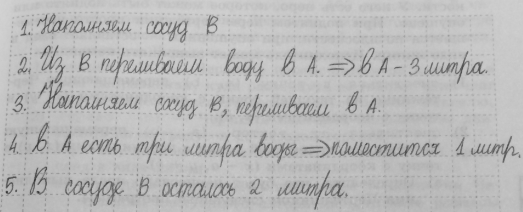 1. Наполняем сосуд В
2. Из В переливаем воду в А. => в А - 3 литра.
3. Наполняем сосуд В, переливаем в А.
4. В А есть три литра воды => поместится 1 литр.
5. В сосуде В осталось 2 литра.